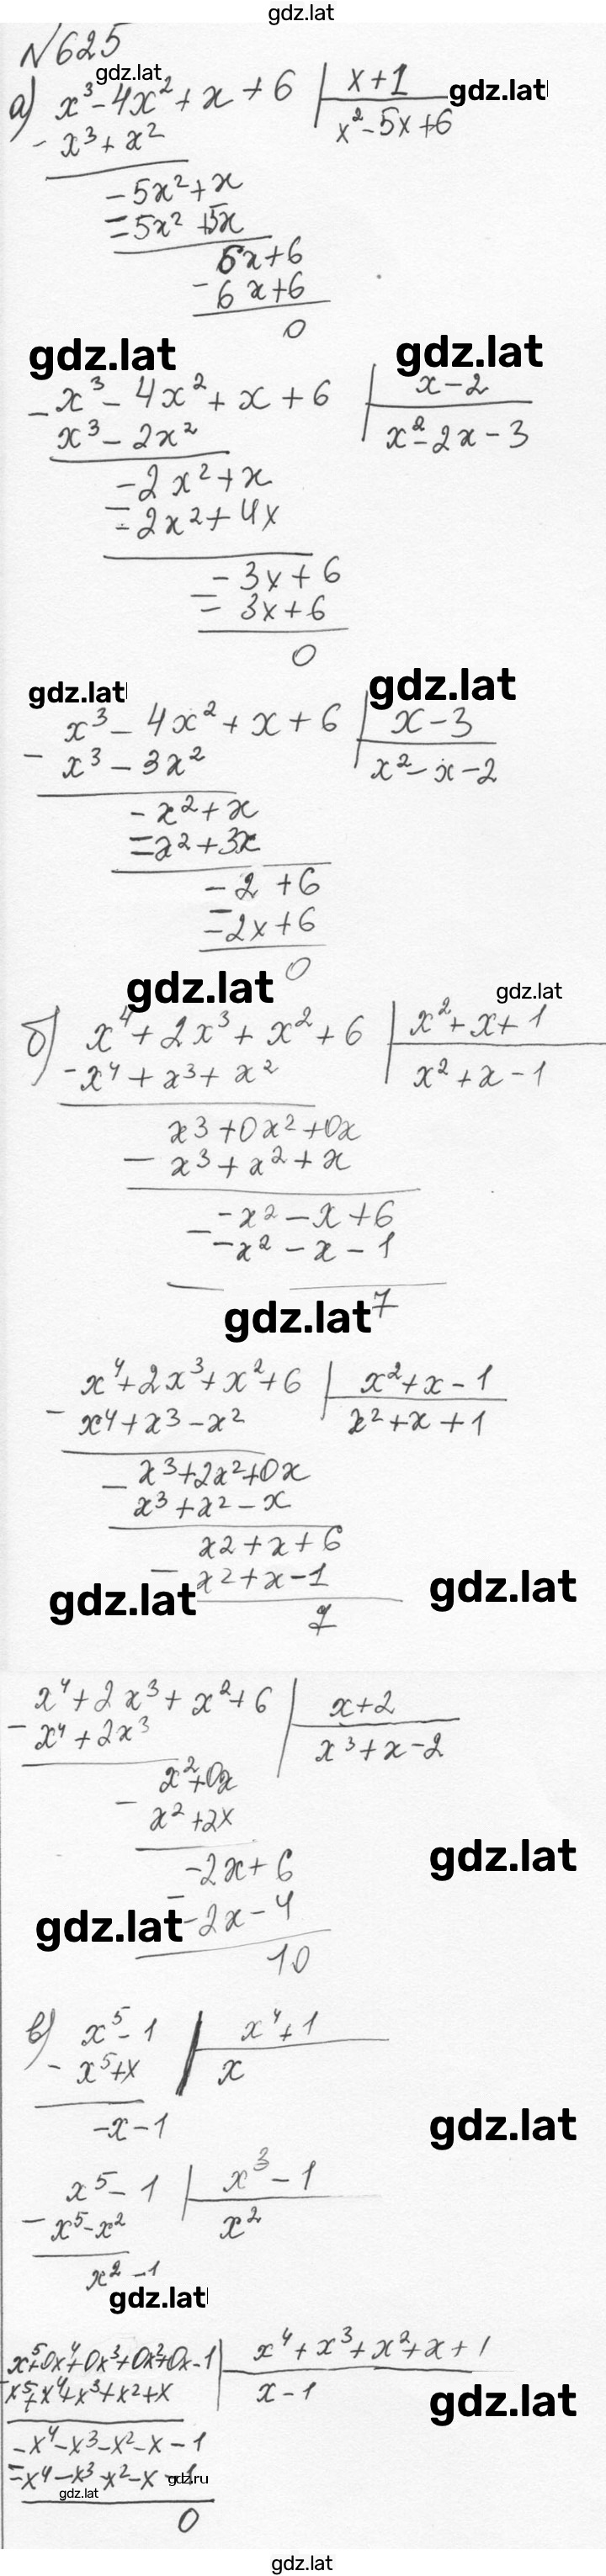 gdz.lat
N 625
gdz.lat
а) x³ - 4x² + x + 6 | x + 1 gdz.lat
- x³ + x² x² - 5x + 6
- 5x² + x
- 5x² + 5x
6x + 6
- 6x + 6
0
gdz.lat gdz.lat
- x³ - 4x² + x + 6 | x - 2
x³ - 2x² x² - 2x - 3
- 2x² + x
- 2x² + 4x
- 3x + 6
- 3x + 6
0
gdz.lat gdz.lat
x³ - 4x² + x + 6 | x - 3
- x³ - 3x² x² - x - 2
- x² + x
- x² + 3x
- 2 + 6
- 2x + 6
0
gdz.lat gdz.lat
б) x⁴ + 2x³ + x² + 6 | x² + x + 1
- x⁴ + x³ + x² x² + x - 1
x³ + 0x² + 0x
- x³ + x² + x
- x² - x + 6
- - x² - x - 1
7
gdz.lat
x⁴ + 2x³ + x² + 6 | x² + x - 1
- x⁴ + x³ - x² x² + x + 1
- x³ + 2x² + 0x
x³ + x² - x
x² + x + 6
- x² + x - 1
gdz.lat gdz.lat
7
x⁴ + 2x³ + x² + 6 | x + 2
- x⁴ + 2x³ x³ + x - 2
x² + 0x
- x² + 2x
- 2x + 6
gdz.lat
- - 2x - 4
gdz.lat
10
в) x⁵ - 1 | x⁴ + 1
- x⁵ + x x
- x - 1
gdz.lat
x⁵ - 1 | x³ - 1
- x⁵ - x² x²
x² - 1
gdz.lat
x⁵ + 0x⁴ + 0x³ + 0x² + 0x - 1 | x⁴ + x³ + x² + x + 1
- x⁵ + x⁴ + x³ + x² + x x - 1
gdz.lat
- x⁴ - x³ - x² - x - 1
- x⁴ - x³ - x² - x - 1
gdz.ru
gdz.lat
0
gdz.lat